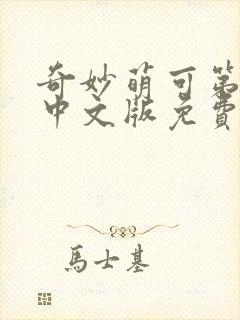 奇妙萌可第
中文版免費
馬士基